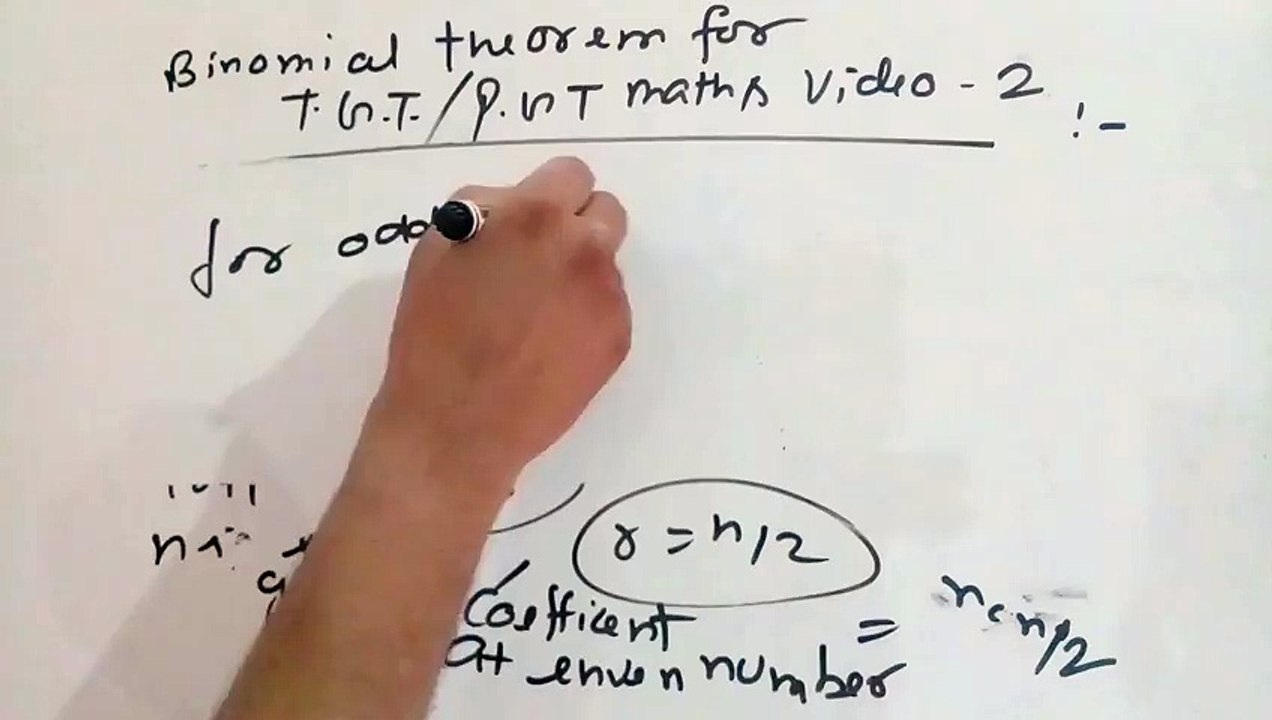 Binomial theorem for
T.G.T./P.G.T maths video - 2 :-
for odd
r = n/2
Coefficent = nCn/2
At enven number